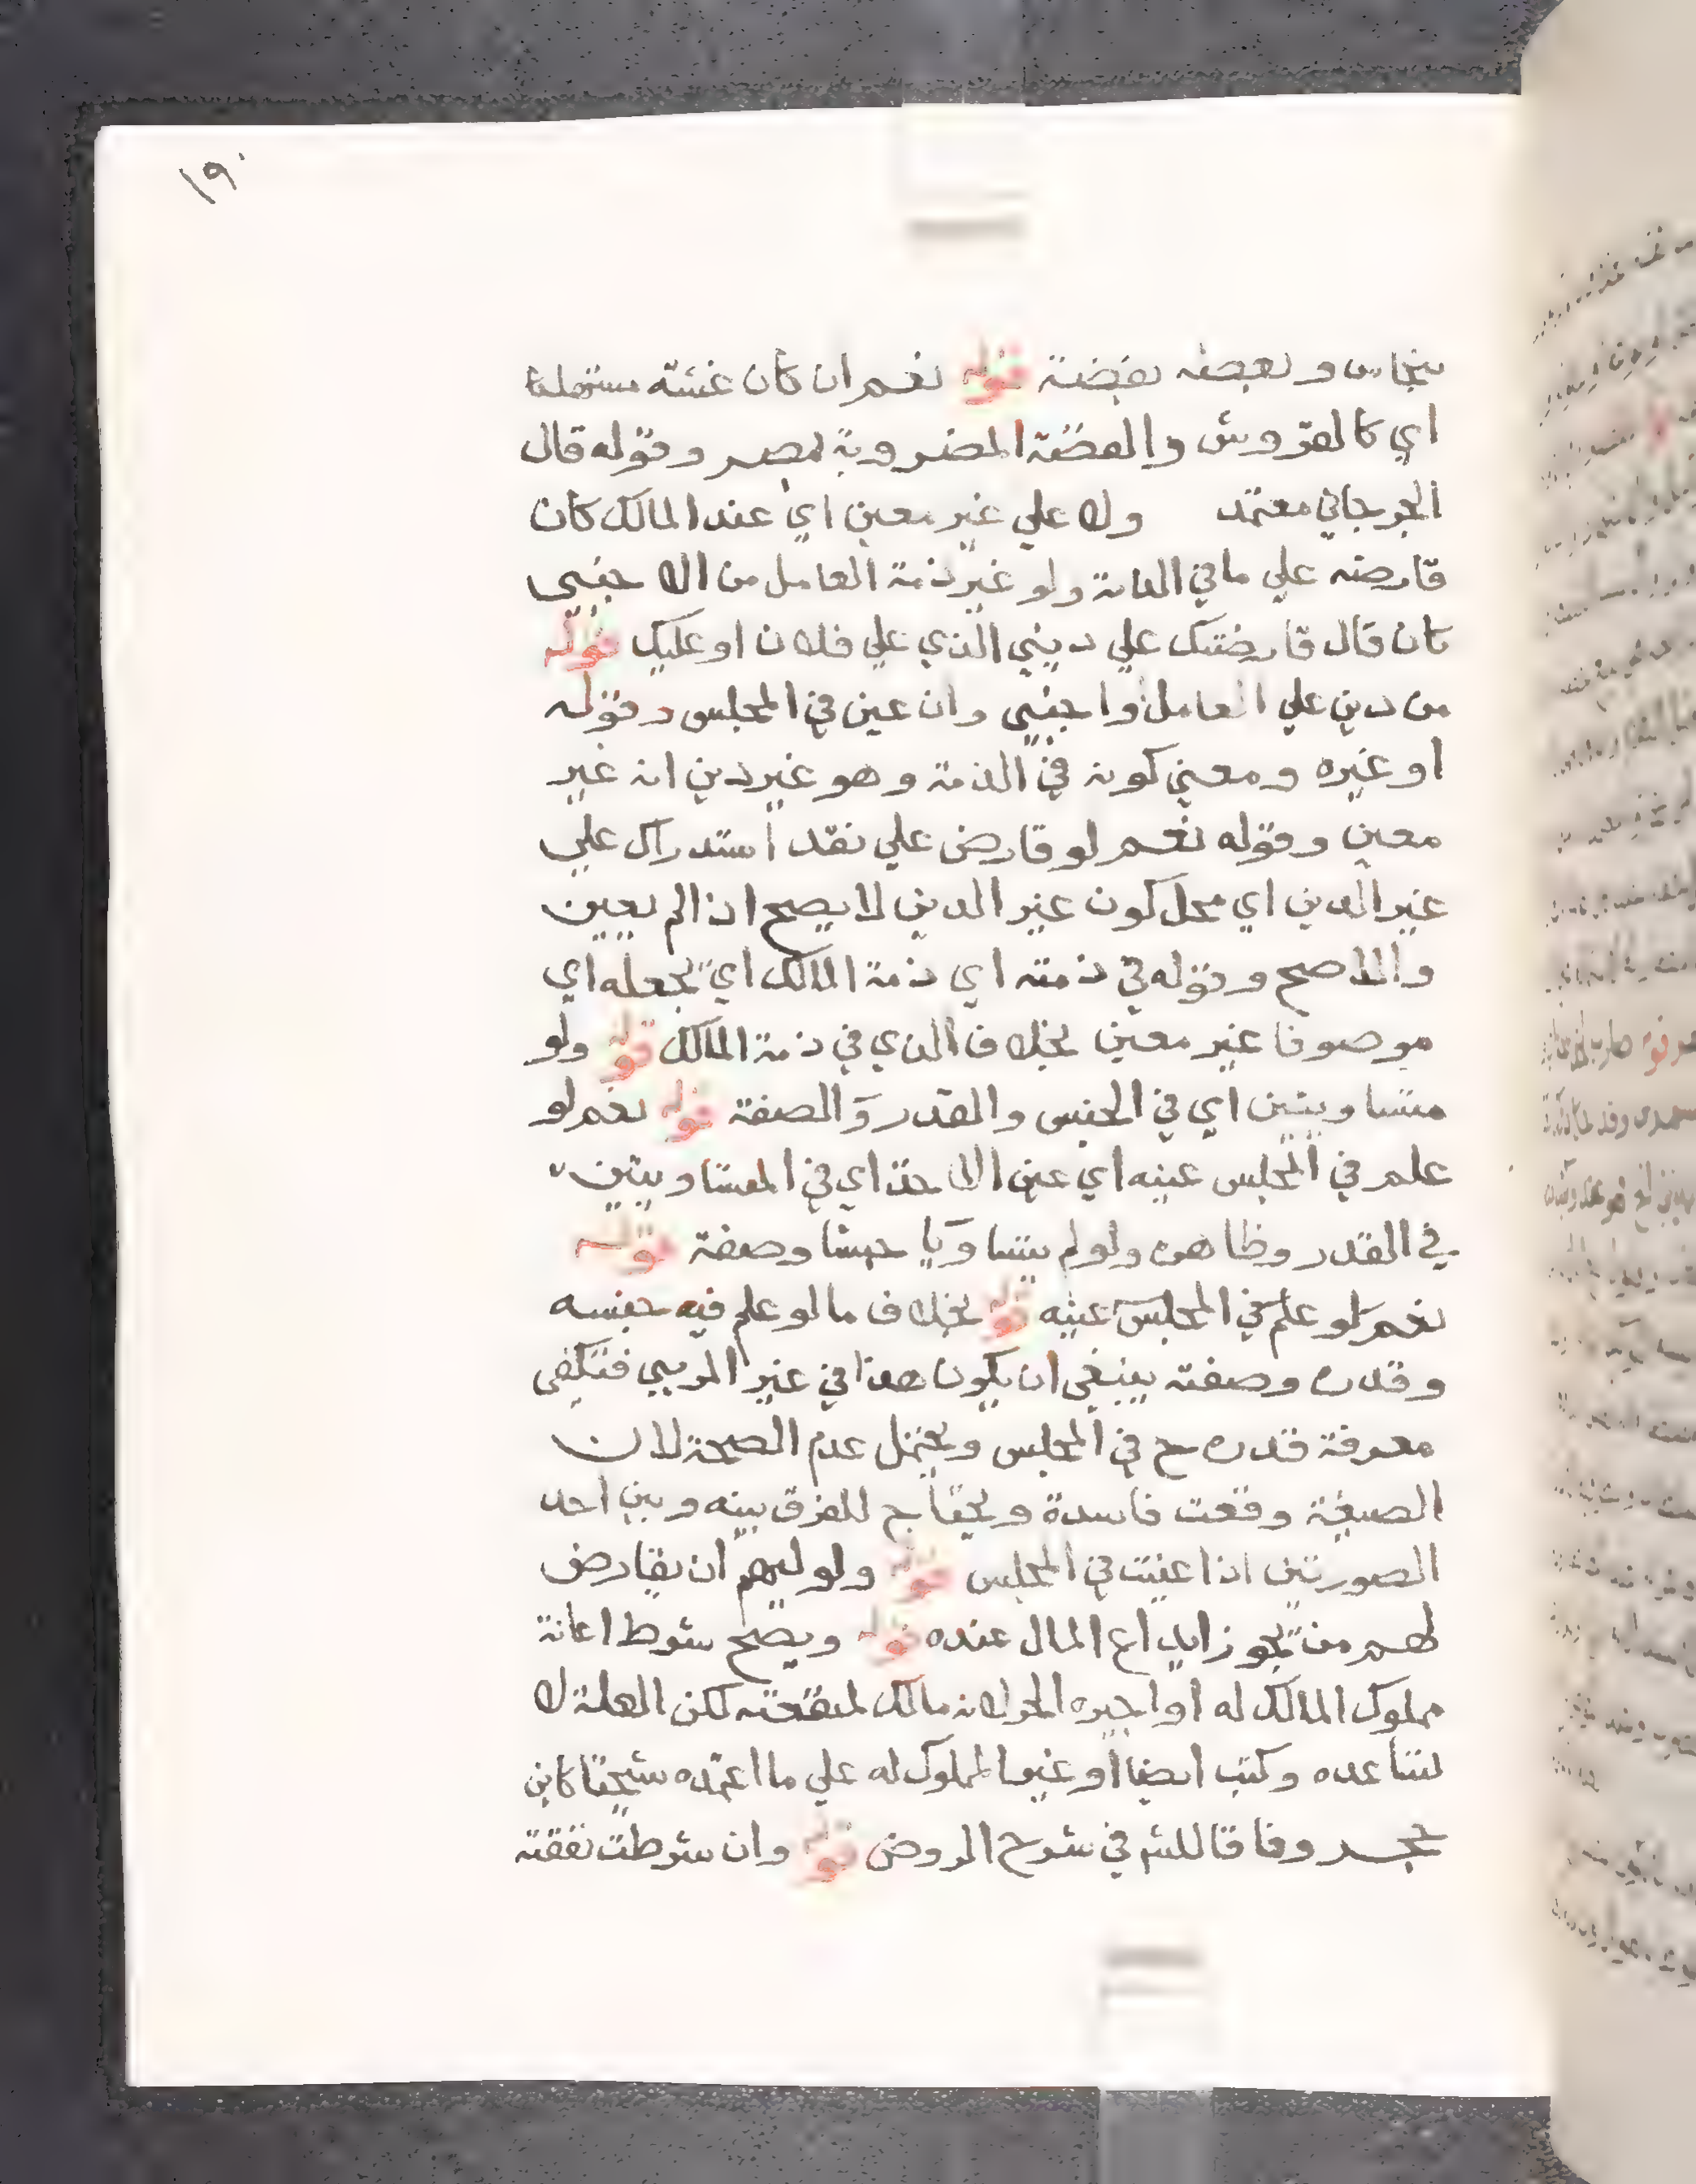 ١٩٠
بنحاس وبعضه بفضة قوله نعم ان كان غشه مستهلكا
اي كالقروش والفضة المضروبة بمصر وقوله قال
الجرجاني معتمد ولا علي غير معين اي عند المالك كان
قارضه علي ما في الذمة ولو غير ذمة العامل من الاجنبي
كان قال قارضتك علي ديني الذي علي فلان او عليك قوله
من دين علي العامل او اجنبي وان عين في المجلس وقوله
او غيره ومعني كونه في الذمة وهو غير دين انه غير
معين وقوله نعم لو قارض علي نقد استدراك علي
غير الدين اي محل كون غير الدين لا يصح اذا لم يعين
والا صح وقوله في ذمته اي ذمة المالك اي بجعله اي
موصوفا غير معين بخلاف الذي في ذمة المالك قوله ولو
متساويتين اي في الجنس والقدر والصفة قوله نعم لو
علم في المجلس عينه اي عين الاحد اي في المتساويتين
في القدر وظاهره ولو لم يتساويا جنسا وصفة قوله
نعم لو علم في المجلس عينه قوله بخلاف ما لو علم فيه جنسه
وقدره وصفته ينبغي ان يكون هذا في غير المريي فتكفي
معرفة قدره ح في المجلس ويحتمل عدم الصحة لان
الصيغة وقعت فاسدة ويحتاج للفرق بينه وبين احد
الصورتين اذا عينت في المجلس قوله ولوليهم ان يقارض
لهم من يجوز ايداع المال عنده قوله ويصح شرط اعانة
مملوك المالك له او اجيره الحر لانه مالك لمنفعته لكن العلة لا
تساعده وكتب ايضا او غير المملوك له علي ما اعتمده شيخنا كابن
حجر وفاقا للشم في شرح الروض قوله وان شرطت نفقته